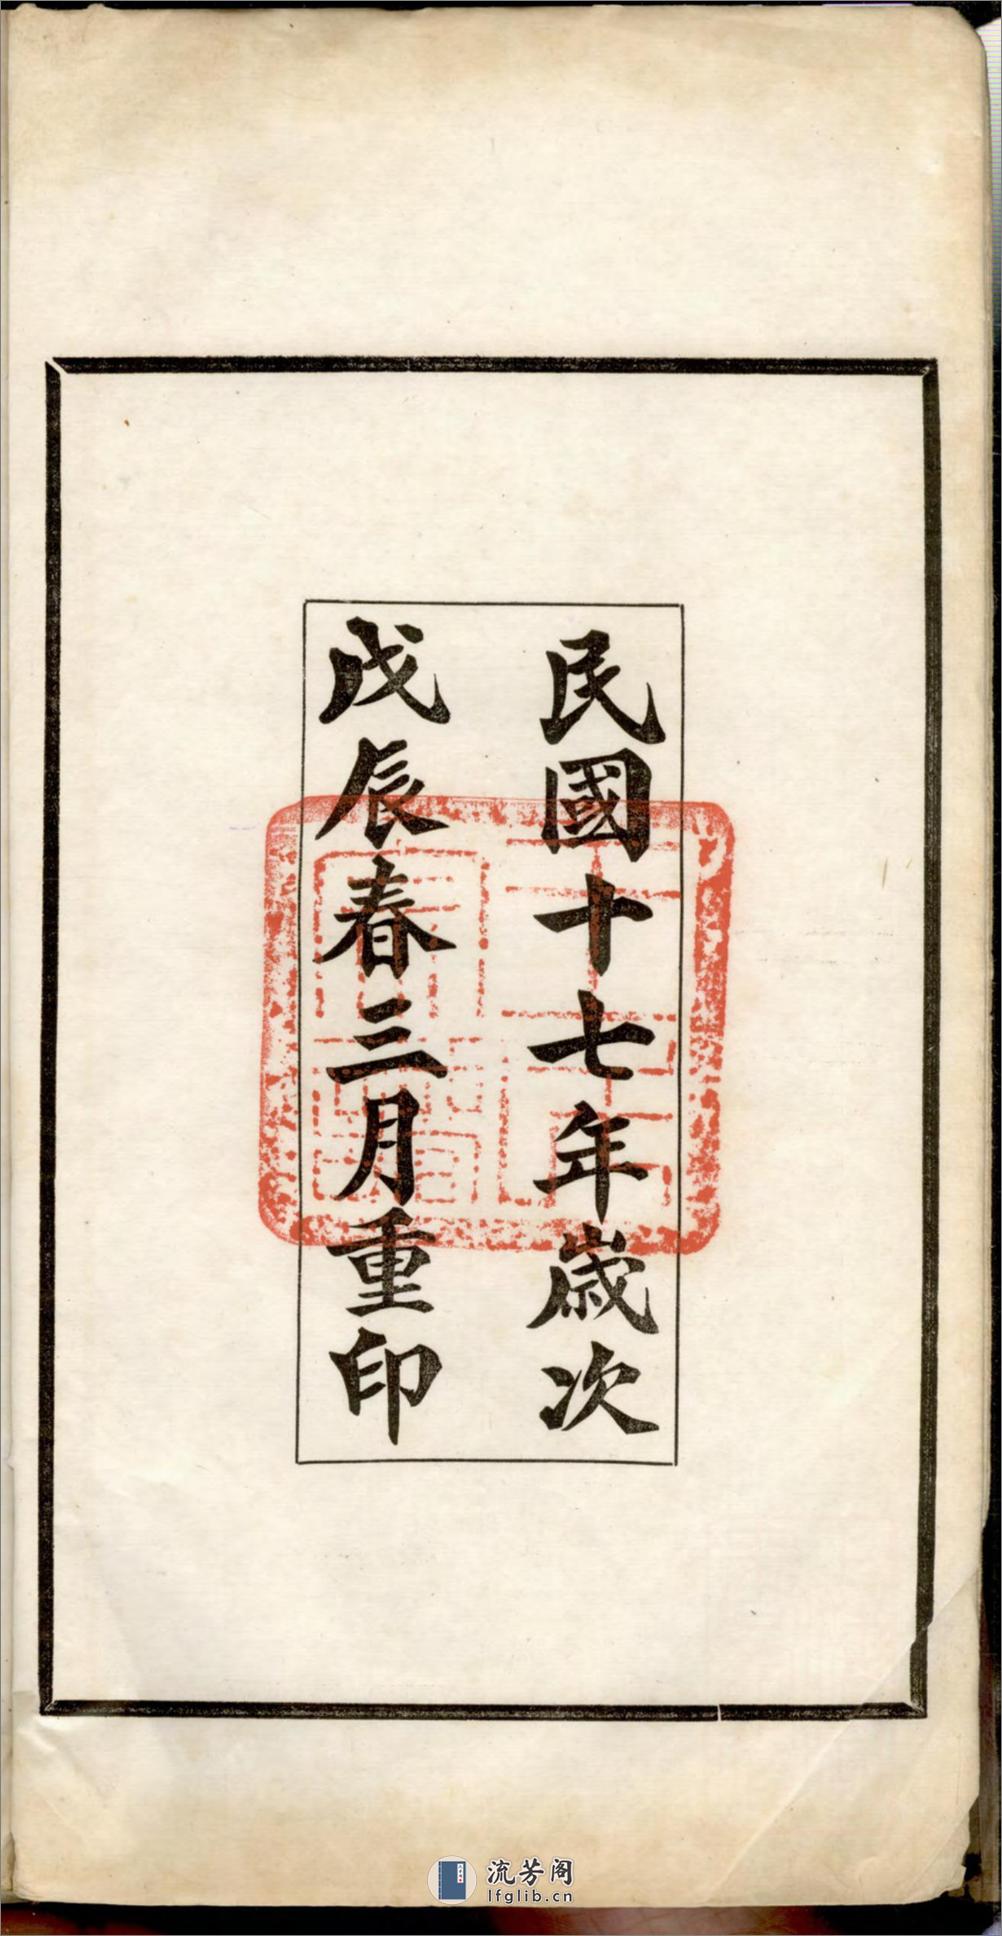 民國十七年歲次
戊辰春三月重印
流芳阁
lfglib.cn